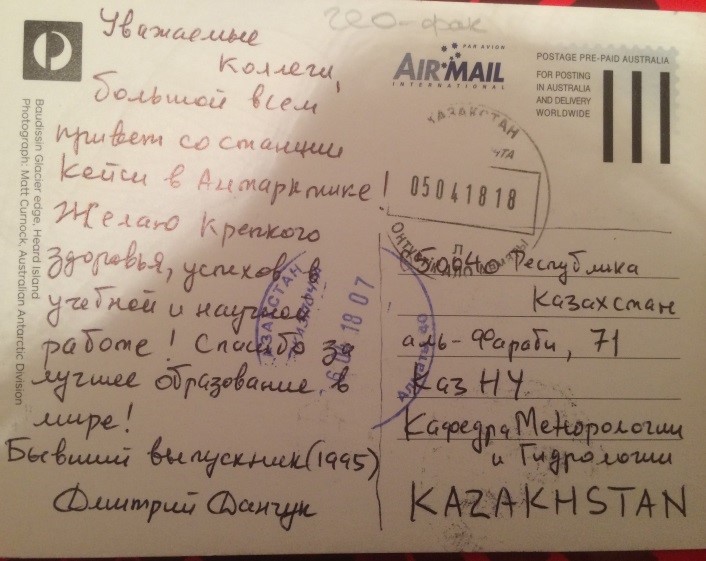 гео-фак
Уважаемые
Коллеги,
большой всем
привет со станции
Кейси в Антарктике!
Желаю Крепкого
Здоровья, успехов в
учебной и научной
работе! Спасибо за
лучшее образование в
мире!
Бывший выпускник (1995)
Дмитрий Данчук
Baudissin Glacier edge, Heard Island
Photograph: Matt Curnock, Australian Antarctic Division
PAR AVION
AIR MAIL
INTERNATIONAL
POSTAGE PRE-PAID AUSTRALIA
FOR POSTING
IN AUSTRALIA
AND DELIVERY
WORLDWIDE
ҚАЗАҚСТАН
05041818
АЛМАТЫ
ҚАЗАҚСТАН
18 07
Алматы
050040 Республика
Казахстан
аль-Фараби, 71
Каз НУ
Кафедра Метеорологии
и Гидрологии
KAZAKHSTAN